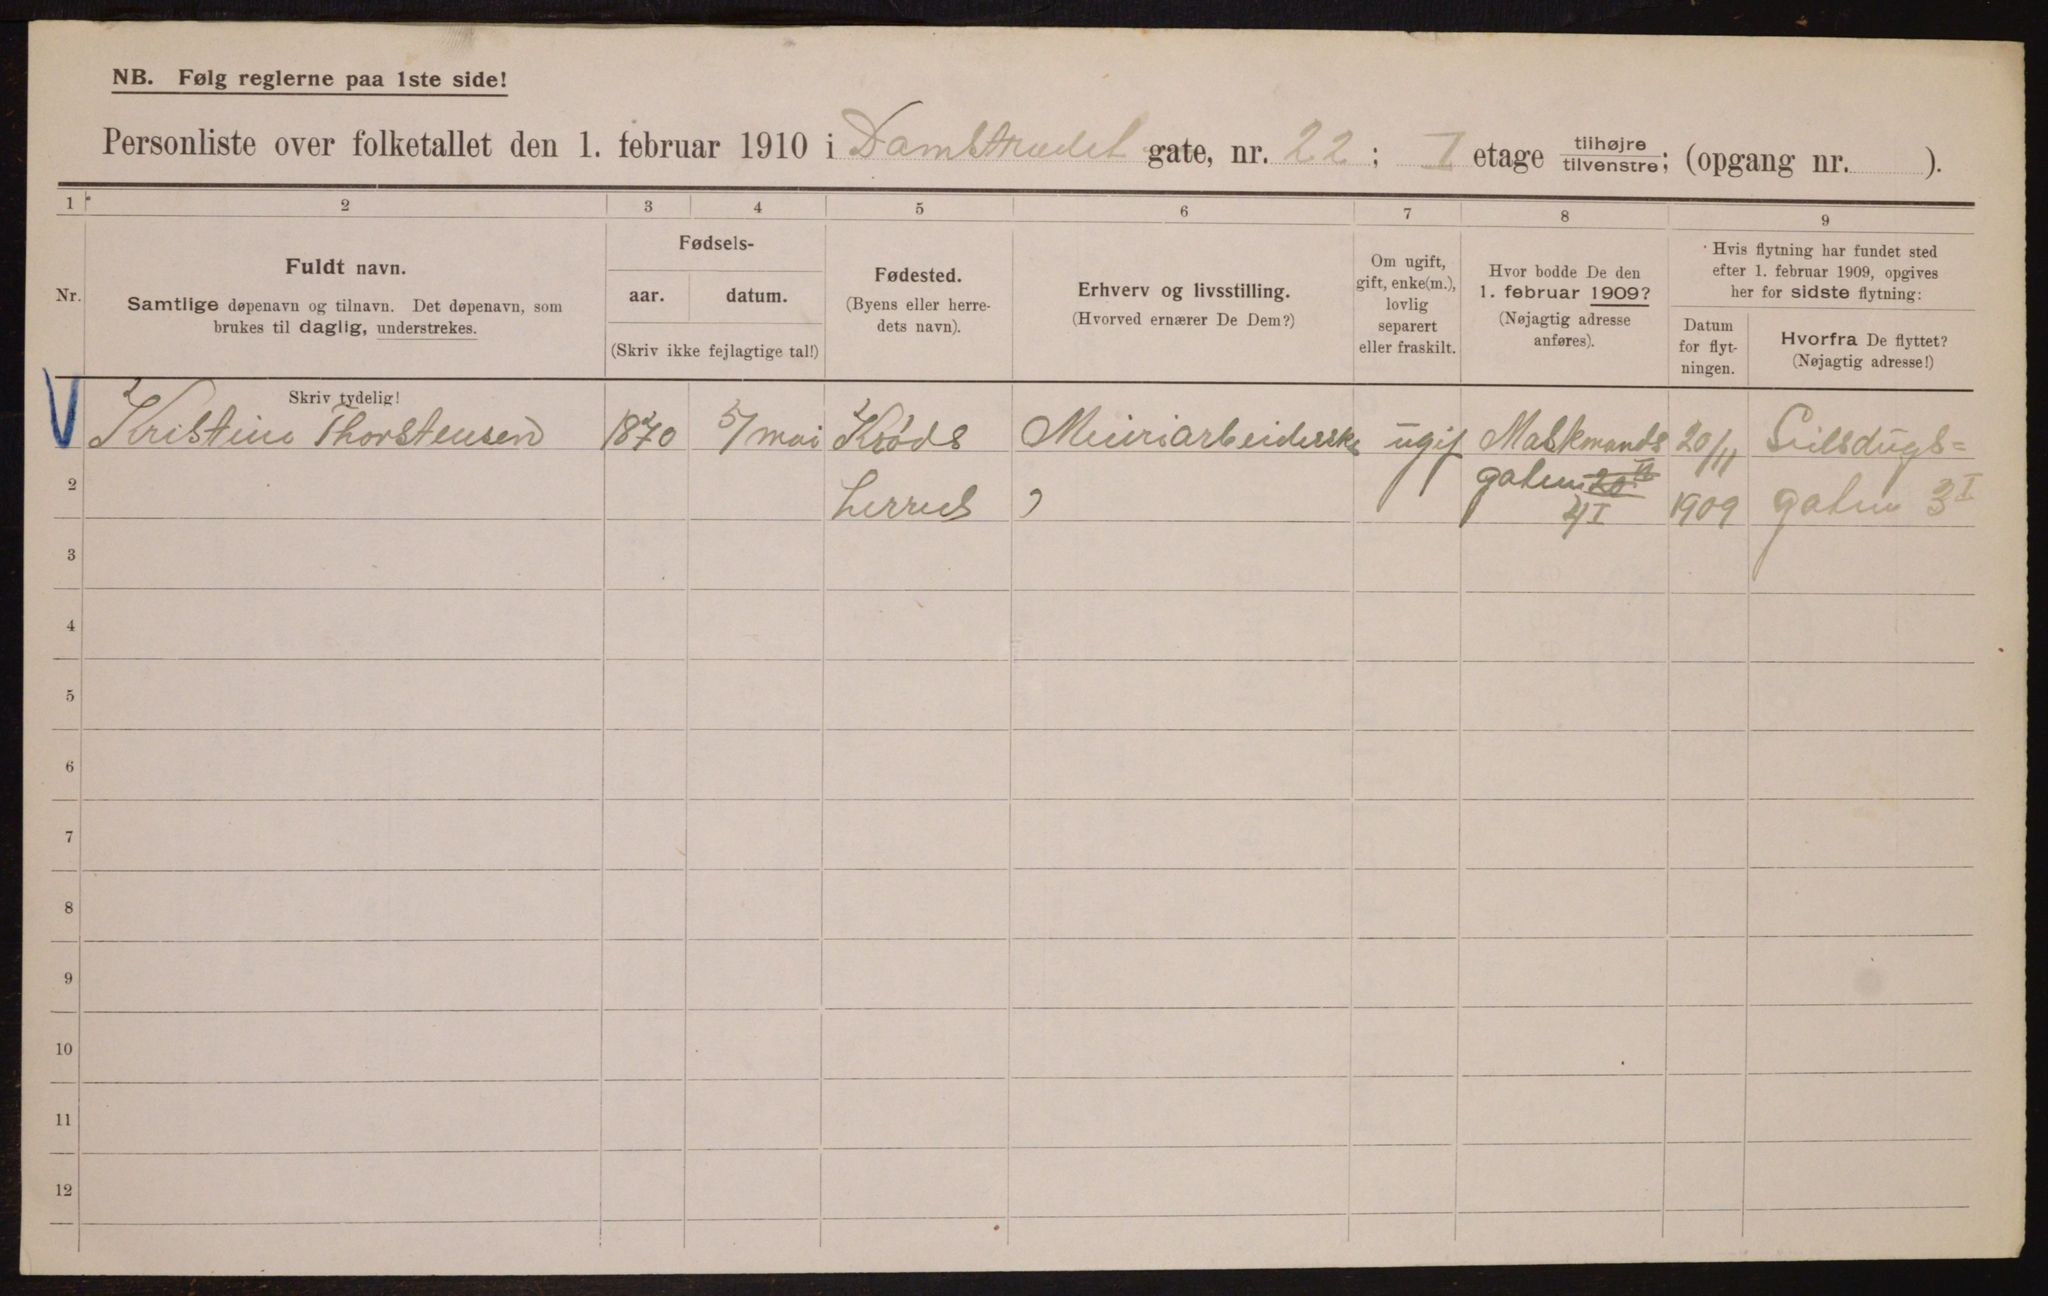 NB. Følg reglerne paa 1ste side!
Personliste over folketallet den 1. februar 1910 i Damstrædet gate, nr. 22; I etage tilhøjre/tilvenstre; (opgang nr. ).
1 2 3 4 5 6 7 8 9
Nr.
Fuldt navn.
Samtlige døpenavn og tilnavn. Det døpenavn, som
brukes til daglig, understrekes.
Skriv tydelig!
Fødsels-
aar. datum.
(Skriv ikke fejlagtige tal!)
Fødested.
(Byens eller herre-
dets navn).
Erhverv og livsstilling.
(Hvorved ernærer De Dem?)
Om ugift,
gift, enke(m.),
lovlig
separert
eller fraskilt.
Hvor bodde De den
1. februar 1909?
(Nøjagtig adresse
anføres).
Hvis flytning har fundet sted
efter 1. februar 1909, opgives
her for sidste flytning:
Datum
for flyt-
ningen.
Hvorfra De flyttet?
(Nøjagtig adresse!)
Kristine Thorstensen 1870 5/mai Krøds Meieriarbeiderske ugif Maskmands 20/11 Seilsdugs=
2 herred gaten 4 I 1909 gaten 3 I
3
4
5
6
7
8
9
10
11
12